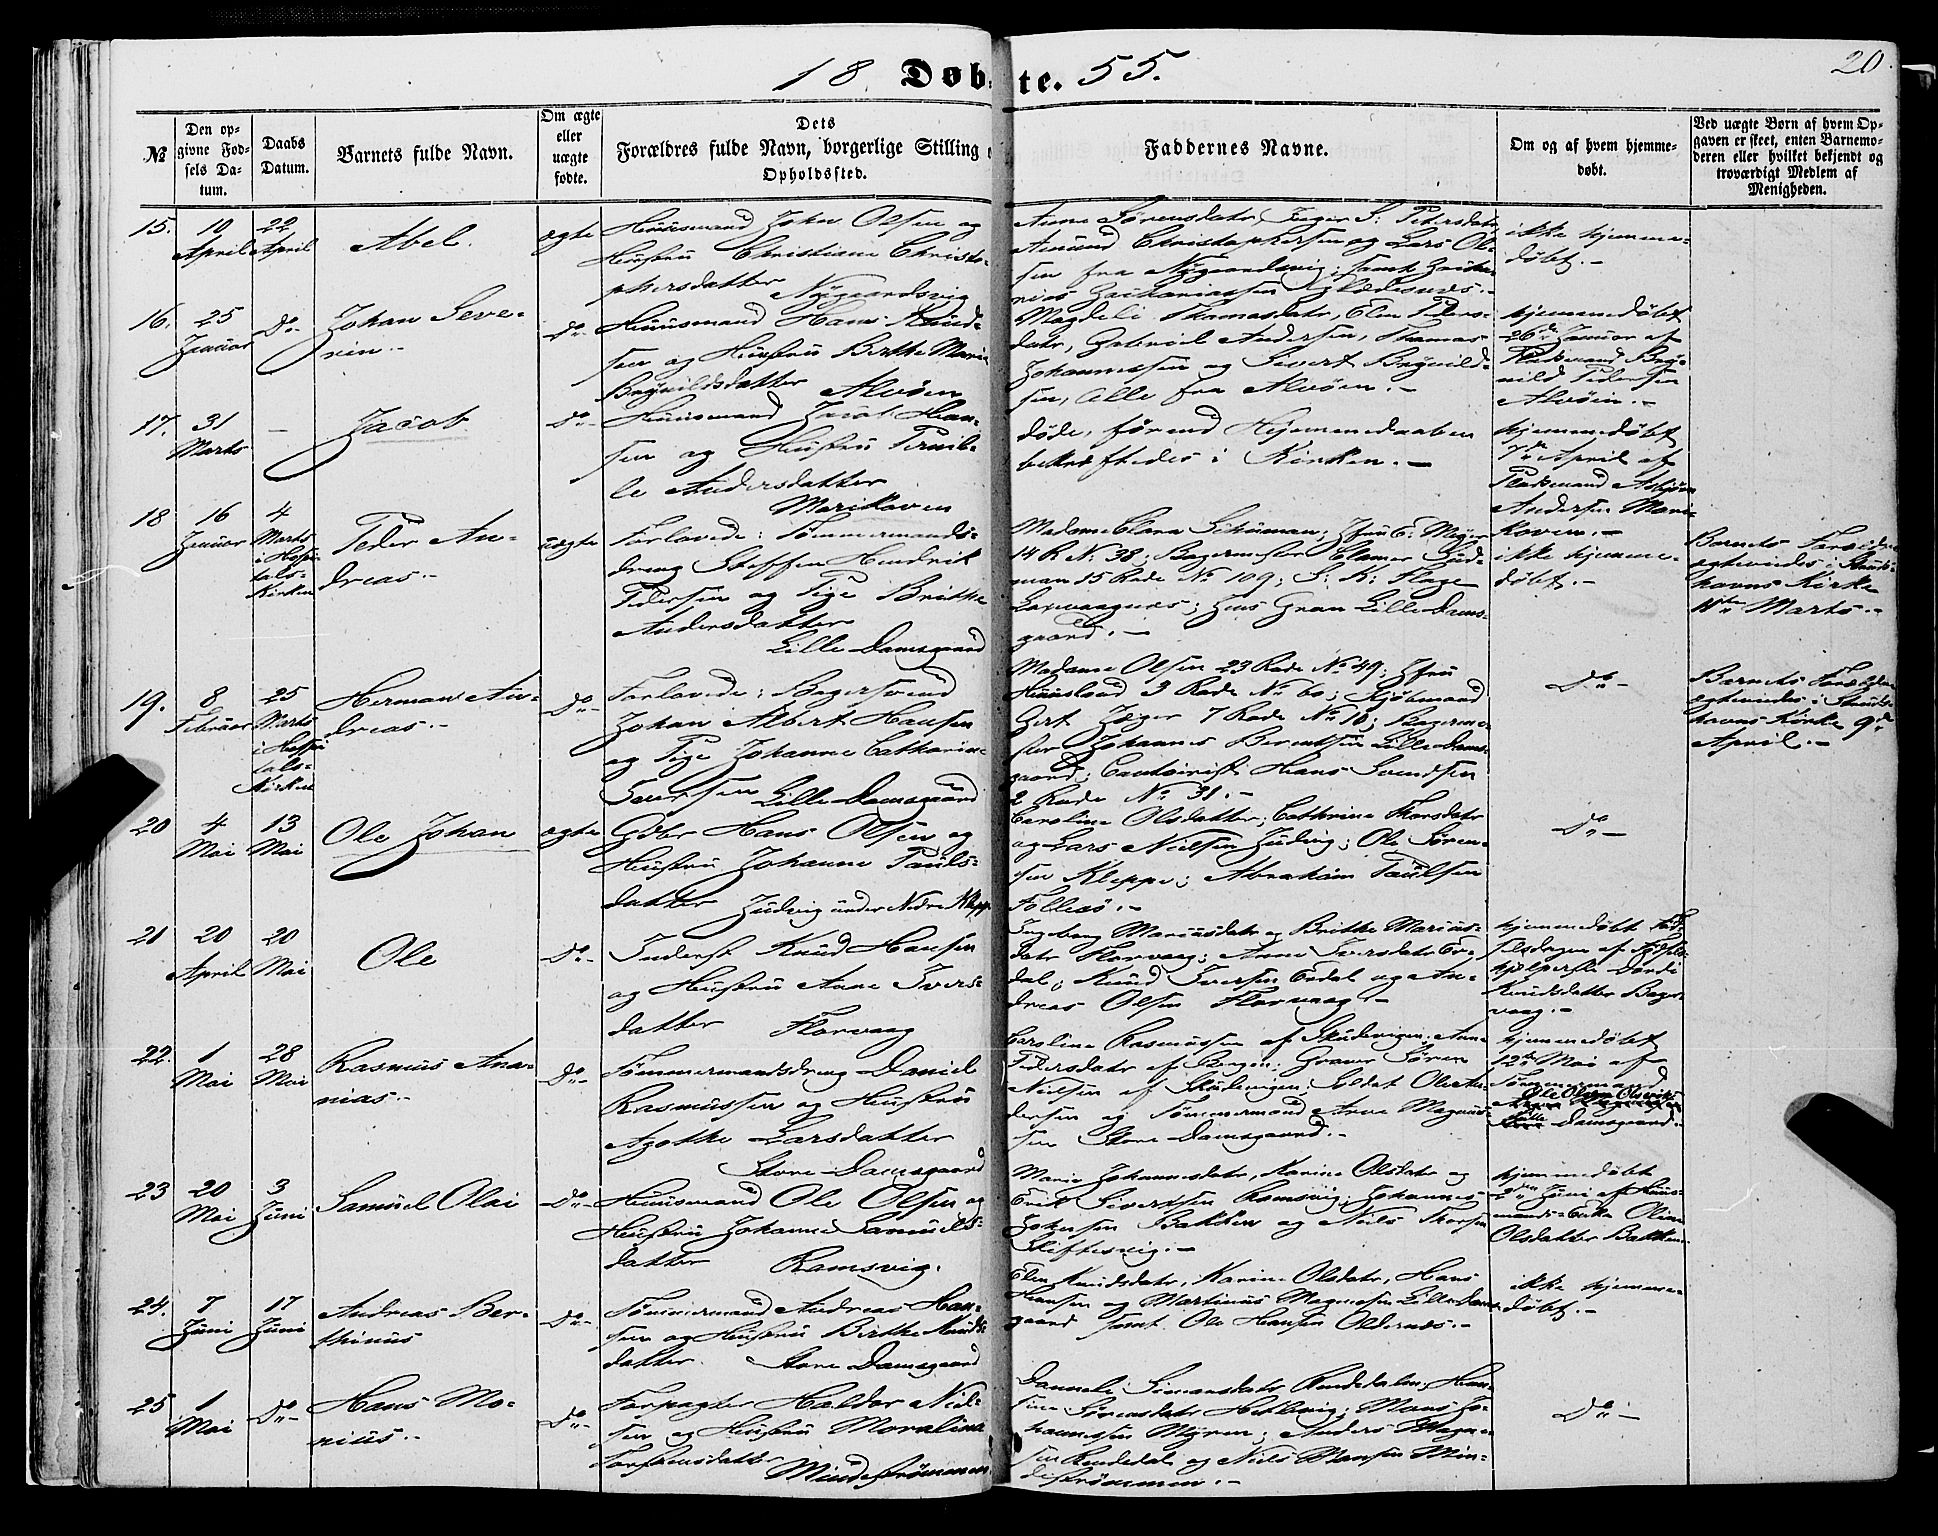 18 Døbte. 55.
20.
№
Den opgivne Fødsels Datum.
Daabs Datum.
Barnets fulde Navn.
Om ægte eller uægte fødte.
Dets Forældres fulde Navn, borgerlige Stilling o
Opholdssted.
Faddernes Navne.
Om og af hvem hjemmedøbt.
Ved uægte Børn af hvem Opgaven er skeet, enten Barnemoderen eller hvilket bekjendt og troværdigt Medlem af Menigheden.
15.
10 April
22 April
Abel.
ægte
Huusmand John Olsen og
Hustru Christiane Christo-
phersdatter Nygaardsvig
Anne Sørensdatr, S: Petersdatr,
Amund Christophersen og Lars Ol-
sen fra Nygaardsvig; samt Zacha-
rias Zachariassen
ikke hjemme-
døbt.-
16.
25 Januar
Do-
Johan Seve-
rin.-
Do-
Huusmand Hans Knud-
sen og Hustru Birthe Marie
Brynildsdatter Alvøen
Magdeli Thomasdatr, Elen Peders-
datr, Gabriel Andersen, Thomas
Johannessen og Sivert Brynild-
sen, Alle fra Alvøen.-
hjemmedøbt
26de Januar af
Pladsmand Bry-
nild Pedersen
Alvøen.-
17.
31 Marts
-
Jacob
Do-
Huusmand Jacob Han-
sen og Hustru Pernil-
le Andersdatter
Marikoven
døde, førend Hjemmedaaben
bekræftedes i Kirken.-
hjemmedøbt
7de April af
Pladsmand Asbjørn
Andersen Mari-
koven.-
18
16 Januar
4 Marts
i Hospi-
tals-
Kirken
Peder An-
dreas.-
uægte
Forlovede: Tømmermands-
dreng Steffen Hendrik
Pedersen og Pige Brithe
Andersdatter
Lille Damsgaard
Madame Clara Schuman; Jfru E. Meyer
14 R. N. 38; Bagermester Clamer Gud-
man 15 Rode No 109; S: K: Flage
Laxevaagnes; Jens Gran Lille-Dams-
gaard.-
ikke hjemme-
døbt.-
Barnets Forældre
ægteviedes i
havns Kirke
18de Marts.-
19.
8 Februar
25 Marts
i Hospi-
tals-
Kirken
Herman An-
dreas.-
Do-
Forlovede: Bagersvend
Johan Albert Hansen
og Pige Johanne Cathrine
Lille Damsgaard
Madame Olsen 23 Rode No 49; Jfru
3 Rode No 60; Kjøbmand
Gert Jæger 7 Rode No 10; Bagerme-
ster Johannes Berentsen Lille-Dams-
gaard; Contoirist Hans Svendsen
2 Rode No 31.-
Do-
Barnets Forældre
ægteviedes i
havns Kirke 9de
April.-
20
4 Mai
13 Mai
Ole Johan
ægte
Gdbr Hans Olsen og
Hustru Johanne Pauls-
datter Judvig under Nedre Klep
Caroline Olsdatter; Cathrine Thorsdatr
og Lars Nielsen Judvig; Ole Søren-
sen Kleppe; Abraham Paulsen
Follesø.-
Do-
21
20 April
20 Mai
Ole
Do-
Inderst Knud Hansen
og Hustru Anne Ivers-
datter Florvaag
Ingeborg Mariusdatr og Brithe Marius-
datr Florvaag; Anne Iversdatr Er-
dal; Knud Iversen Erdal og An-
dreas Olsen Florvaag.-
hjemmedøbt Fød-
selsdagen af Fødsels-
hjælperske Dordi
Knudsdatter
vaag.-
22.
1 Mai
28 Mai
Rasmus Ana-
nias.-
Do-
Tømmermandsdreng Daniel
Rasmussen og Hustru
Larsdatter
Store-Damsgaard
Caroline Rasmussen af Skudevigen; Anne
Pedersdatr af Bergen; Graver Søren
Nielsen af Skudevigen; Soldat Ole An-
dersen og Tømmermand Arne Magnus-
sen Store Damsgaard.-
hjemmedøbt
12te Mai af
Tømmermand
Ole Olsen
Damsgaard.-
23
20 Mai
3 Juni
Samuel Olai
Do-
Huusmand Ole Olsen og
Hustru Johanne Samuels-
datter Ramsvig.
Marie Johannesdatr, Karine Olsdatr og
Erik Sivertsen Ramsvig; Johannes
Johnsen Bakken og Niels Thorsen
Skiftesvig.-
hjemmedøbt
2den Juni af Huus-
mands-Enke Oline
Olsdatter Bakken.
24.
7 Juni
17 Juni
Andreas Ber-
thinus
Do-
Tømmermand Andreas Han-
sen og Hustru Birthe Knuds-
datter. Store Damsgaard
Elen Knudsdatr, Karine Olsdatr, Hans
Hansen og Martinus Magnesen Lille-Dams-
gaard samt Ole Hansen Oldernæs.-
ikke hjemme-
døbt.-
25
1 Mai
Do-
Hans Mo-
nius.-
Do-
Forpagter Haldor Niel-
sen og Hustru Moraline
Torstensdatter
Mindestrømmen
Dannele Simonsdatr Rendedalen; Han-
sine Sørensdatr Hetlevig; Mons Jo-
hannessen Myren; Anders Magne-
sen Rendedal og Niels Monsen Min-
destrømmen.-
Do-